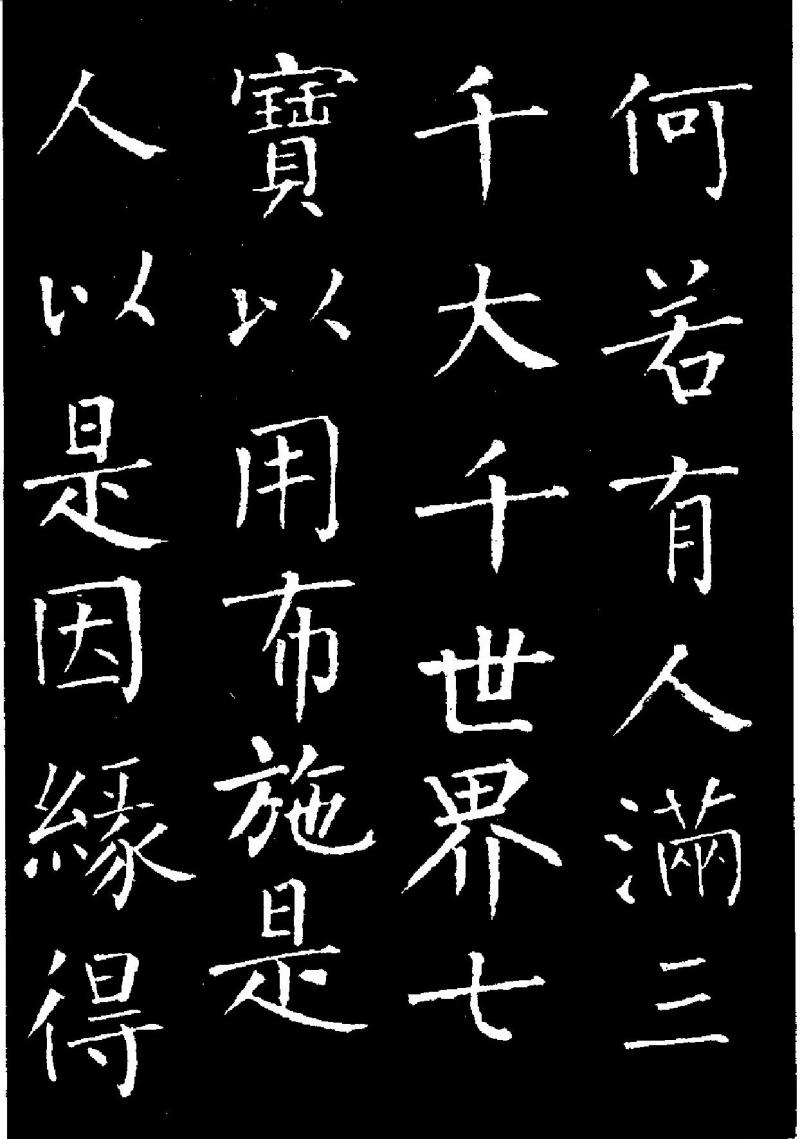 何若有人滿三
千大千世界七
寶以用布施是
人以是因緣得